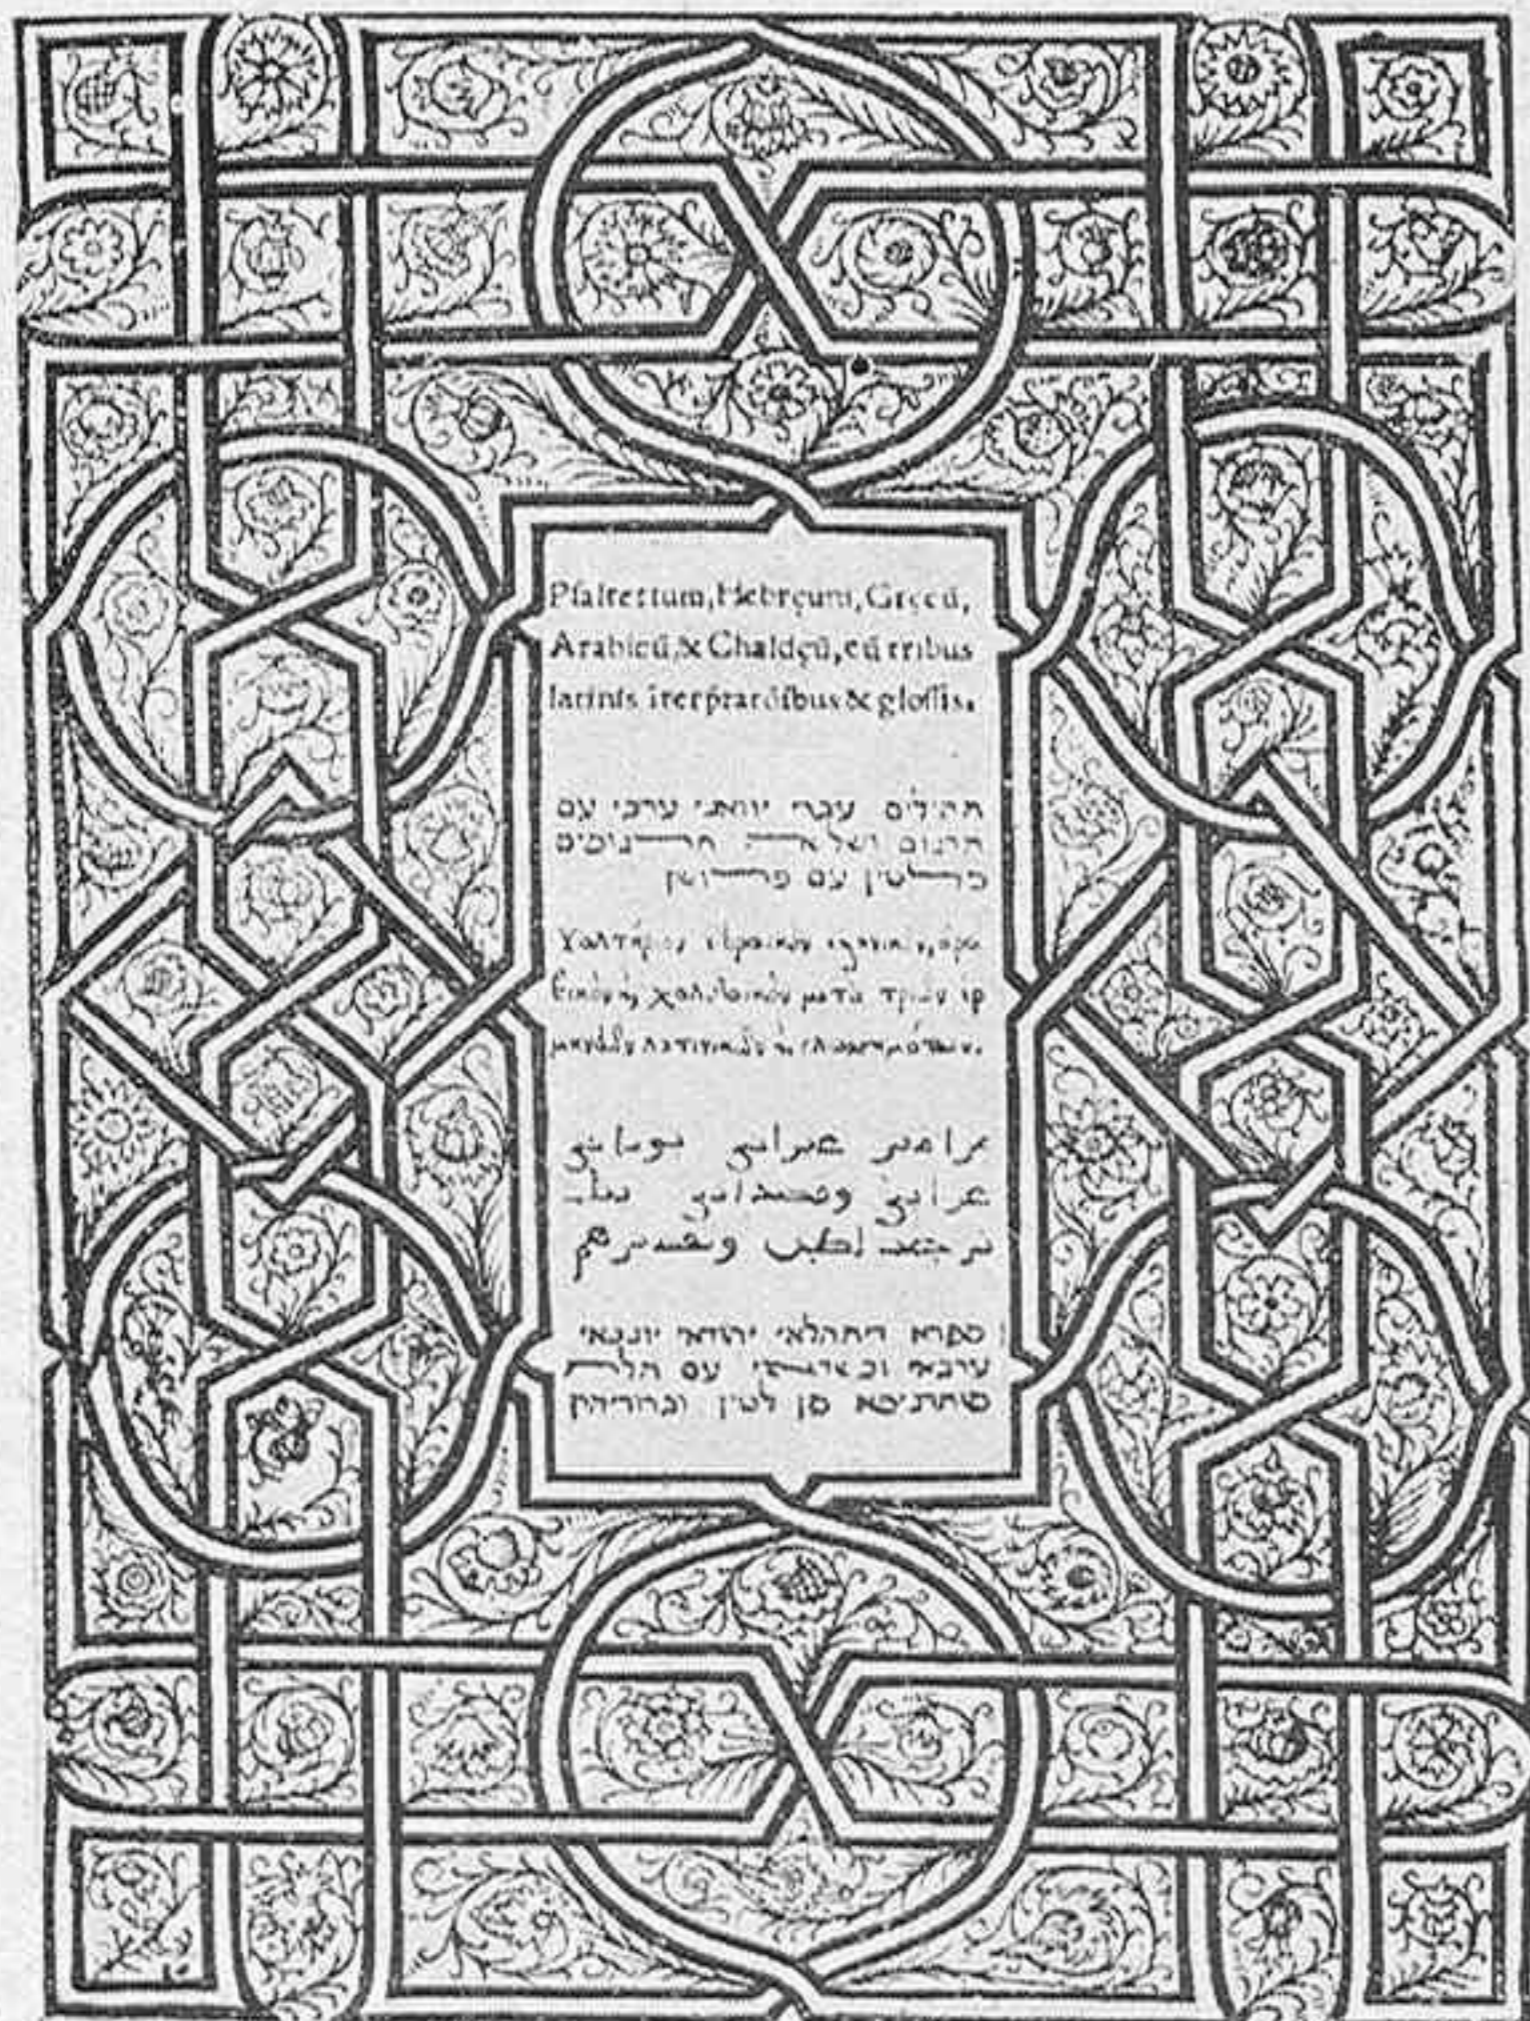 Psalterium, Hebręum, Gręcū,
Arabicū, & Chaldęū, cū tribus
latinis īterp̄tatōibus & glossis.
תהילים עברי יווני ערבי עם
תרגום ושלאשה תרגומים
בלטין עם פרושן
Ψαλτήριον ἑβραϊκὸν ἑλληνικὸν, ἀρα
βικὸν ϗ χαλδαϊκὸν μετὰ τριῶν ἑρ
μηνειῶν λατινικῶν ϗ γλωσσημάτων.
مزامير عبراني يوناني
عرابي وقصداني بثلث
ترجمات لطين وتفسيرهم
ספרא דיתהלאי יהודאי יוונאי
ערבאי וכשדאי עם תלת
לטין